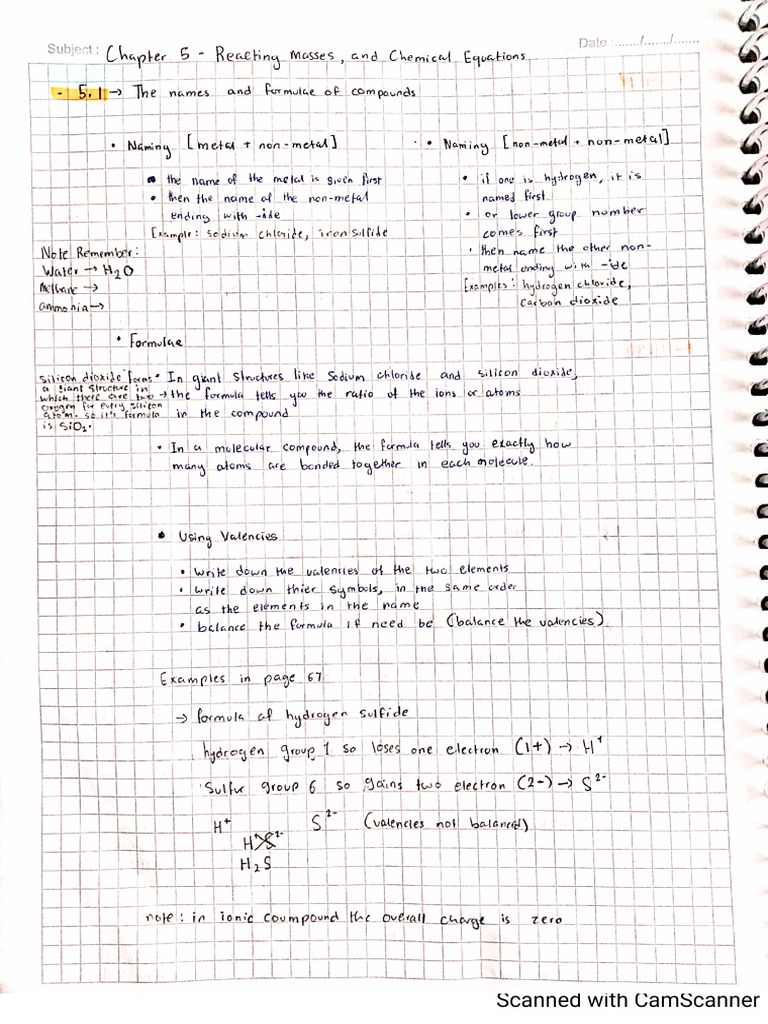 Subject : Chapter 5 - Reacting Masses, and Chemical Equations
Date : ......./......./.......
- 5.1 → The names and formulae of compounds
• Naming [metal + non-metal]
• the name of the metal is given first
• then the name of the non-metal
ending with -ide
Example: sodium chloride, iron sulfide
• Naming [non-metal + non-metal]
• if one is hydrogen, it is
named first
• or lower group number
comes first
• then name the other non-
metal ending with -ide
Examples: hydrogen chloride,
carbon dioxide
Note Remember:
Water → H₂O
Methane →
ammonia →
• Formulae
silicon dioxide forms
a giant structure in
which there are two →
oxygen for every silicon
atom. so it's formula
is SiO₂.
• In giant structures like Sodium chloride and silicon dioxide,
the formula tells you the ratio of the ions or atoms
in the compound
• In a molecular compound, the formula tells you exactly how
many atoms are bonded together in each molecule.
• Using Valencies
• write down the valencies of the two elements
• write down thier symbols, in the same order
as the elements in the name
• balance the formula if need be (balance the valencies)
Examples in page 67
→ formula of hydrogen sulfide
hydrogen group 1 so loses one electron (1+) → H⁺
Sulfur group 6 so gains two electron (2-) → S²⁻
H⁺ S²⁻ (valencies not balanced)
H⁺S²⁻
H₂S
note: in ionic coumpound the overall charge is zero
Scanned with CamScanner